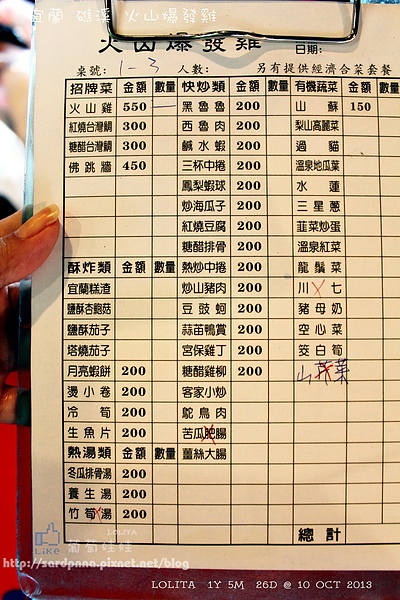 宜蘭 礁溪 火山爆發雞
火山爆發雞
日期:
桌號: 1-3 人數: 另有提供經濟合菜套餐
招牌菜 金額 數量 快炒類 金額 有機蔬菜 金額
火山雞 550 一 黑魯魯 200 山蘇 150
紅燒台灣鯛 300 西魯肉 200 梨山高麗菜
糖醋台灣鯛 300 鹹水蝦 200 過貓
佛跳牆 450 三杯中捲 200 溫泉地瓜葉
鳳梨蝦球 200 水蓮
炒海瓜子 200 三星蔥
紅燒豆腐 200 韮菜炒蛋
糖醋排骨 200 溫泉紅菜
酥炸類 金額 數量 熱炒中捲 200 龍鬚菜
宜蘭糕渣 炒山豬肉 200 川七
鹽酥杏鮑菇 豆豉蚵 200 豬母奶
鹽酥茄子 蒜苗鴨賞 200 空心菜
塔燒茄子 宮保雞丁 200 筊白筍
月亮蝦餅 200 糖醋雞柳 200 山茼菜
燙小卷 200 客家小炒
冷筍 200 鴕鳥肉
生魚片 200 苦瓜肥腸
熱湯類 金額 數量 薑絲大腸
冬瓜排骨湯 200
養生湯 200
竹筍湯 200
總計
LIKE LOLITA 葡萄娃娃
http://sardpnna.pixnet.net/blog
LOLITA 1Y 5M 26D @ 10 OCT 2013